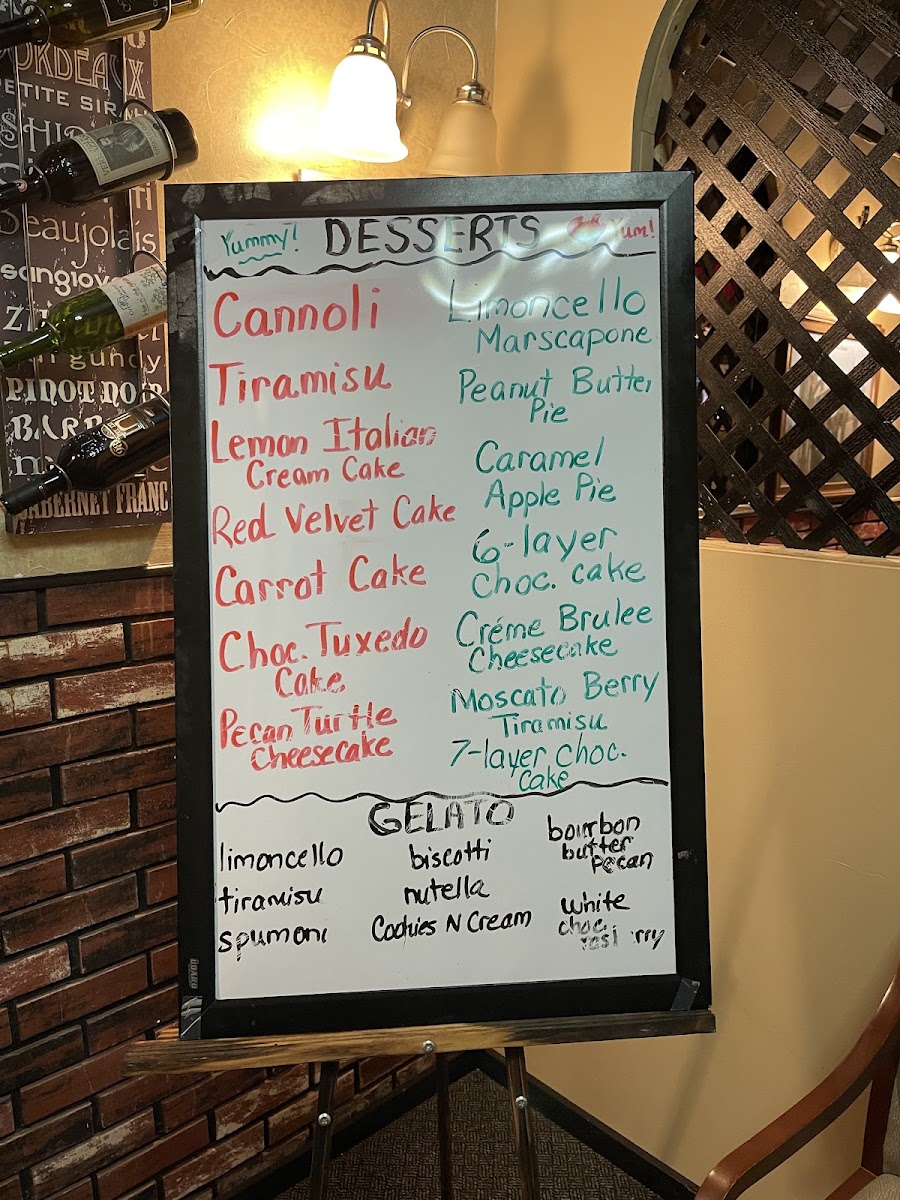 Yummy! DESSERTS Yum!
Cannoli
Tiramisu
Lemon Italian
Cream Cake
Red Velvet Cake
Carrot Cake
Choc. Tuxedo
Cake
Pecan Turtle
Cheesecake
Limoncello
Marscapone
Peanut Butter
Pie
Caramel
Apple Pie
6-layer
Choc. cake
Créme Brulee
Cheesecake
Moscato Berry
Tiramisu
7-layer choc.
Cake
GELATO
limoncello
tiramisu
spumoni
biscotti
nutella
Cookies N Cream
bourbon
butter
pecan
white
choc.
PETITE SIR
Beaujolais
sangiov
gundy
PINOT NOIR
CABERNET FRANC